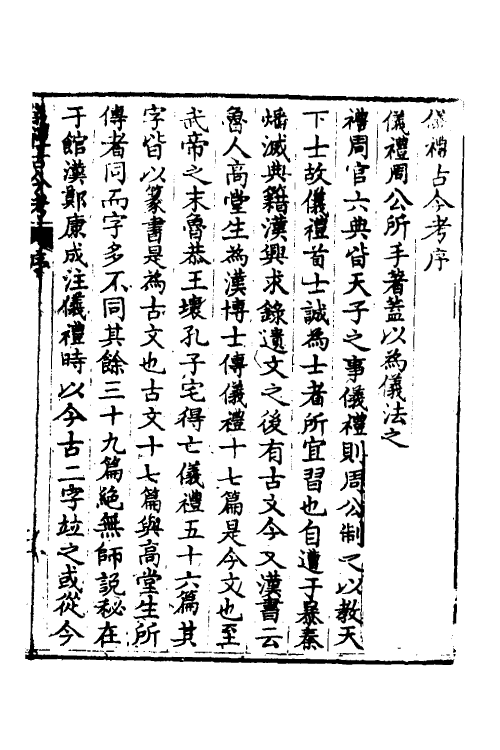 儀禮古今考序
儀禮周公所手著蓋以為儀法之
禮周官六典皆天子之事儀禮則周公制之以教天
下士故儀禮首士誠為士者所宜習也自遭于暴秦
燔滅典籍漢興求錄遺文之後有古文今文漢書云
魯人高堂生為漢博士傳儀禮十七篇是今文也至
武帝之末魯恭王壞孔子宅得亡儀禮五十六篇其
字皆以篆書是為古文也古文十七篇與高堂生所
傳者同而字多不同其餘三十九篇絕無師說秘在
于館漢鄭康成注儀禮時以今古二字竝之或從今
儀禮古今考 序